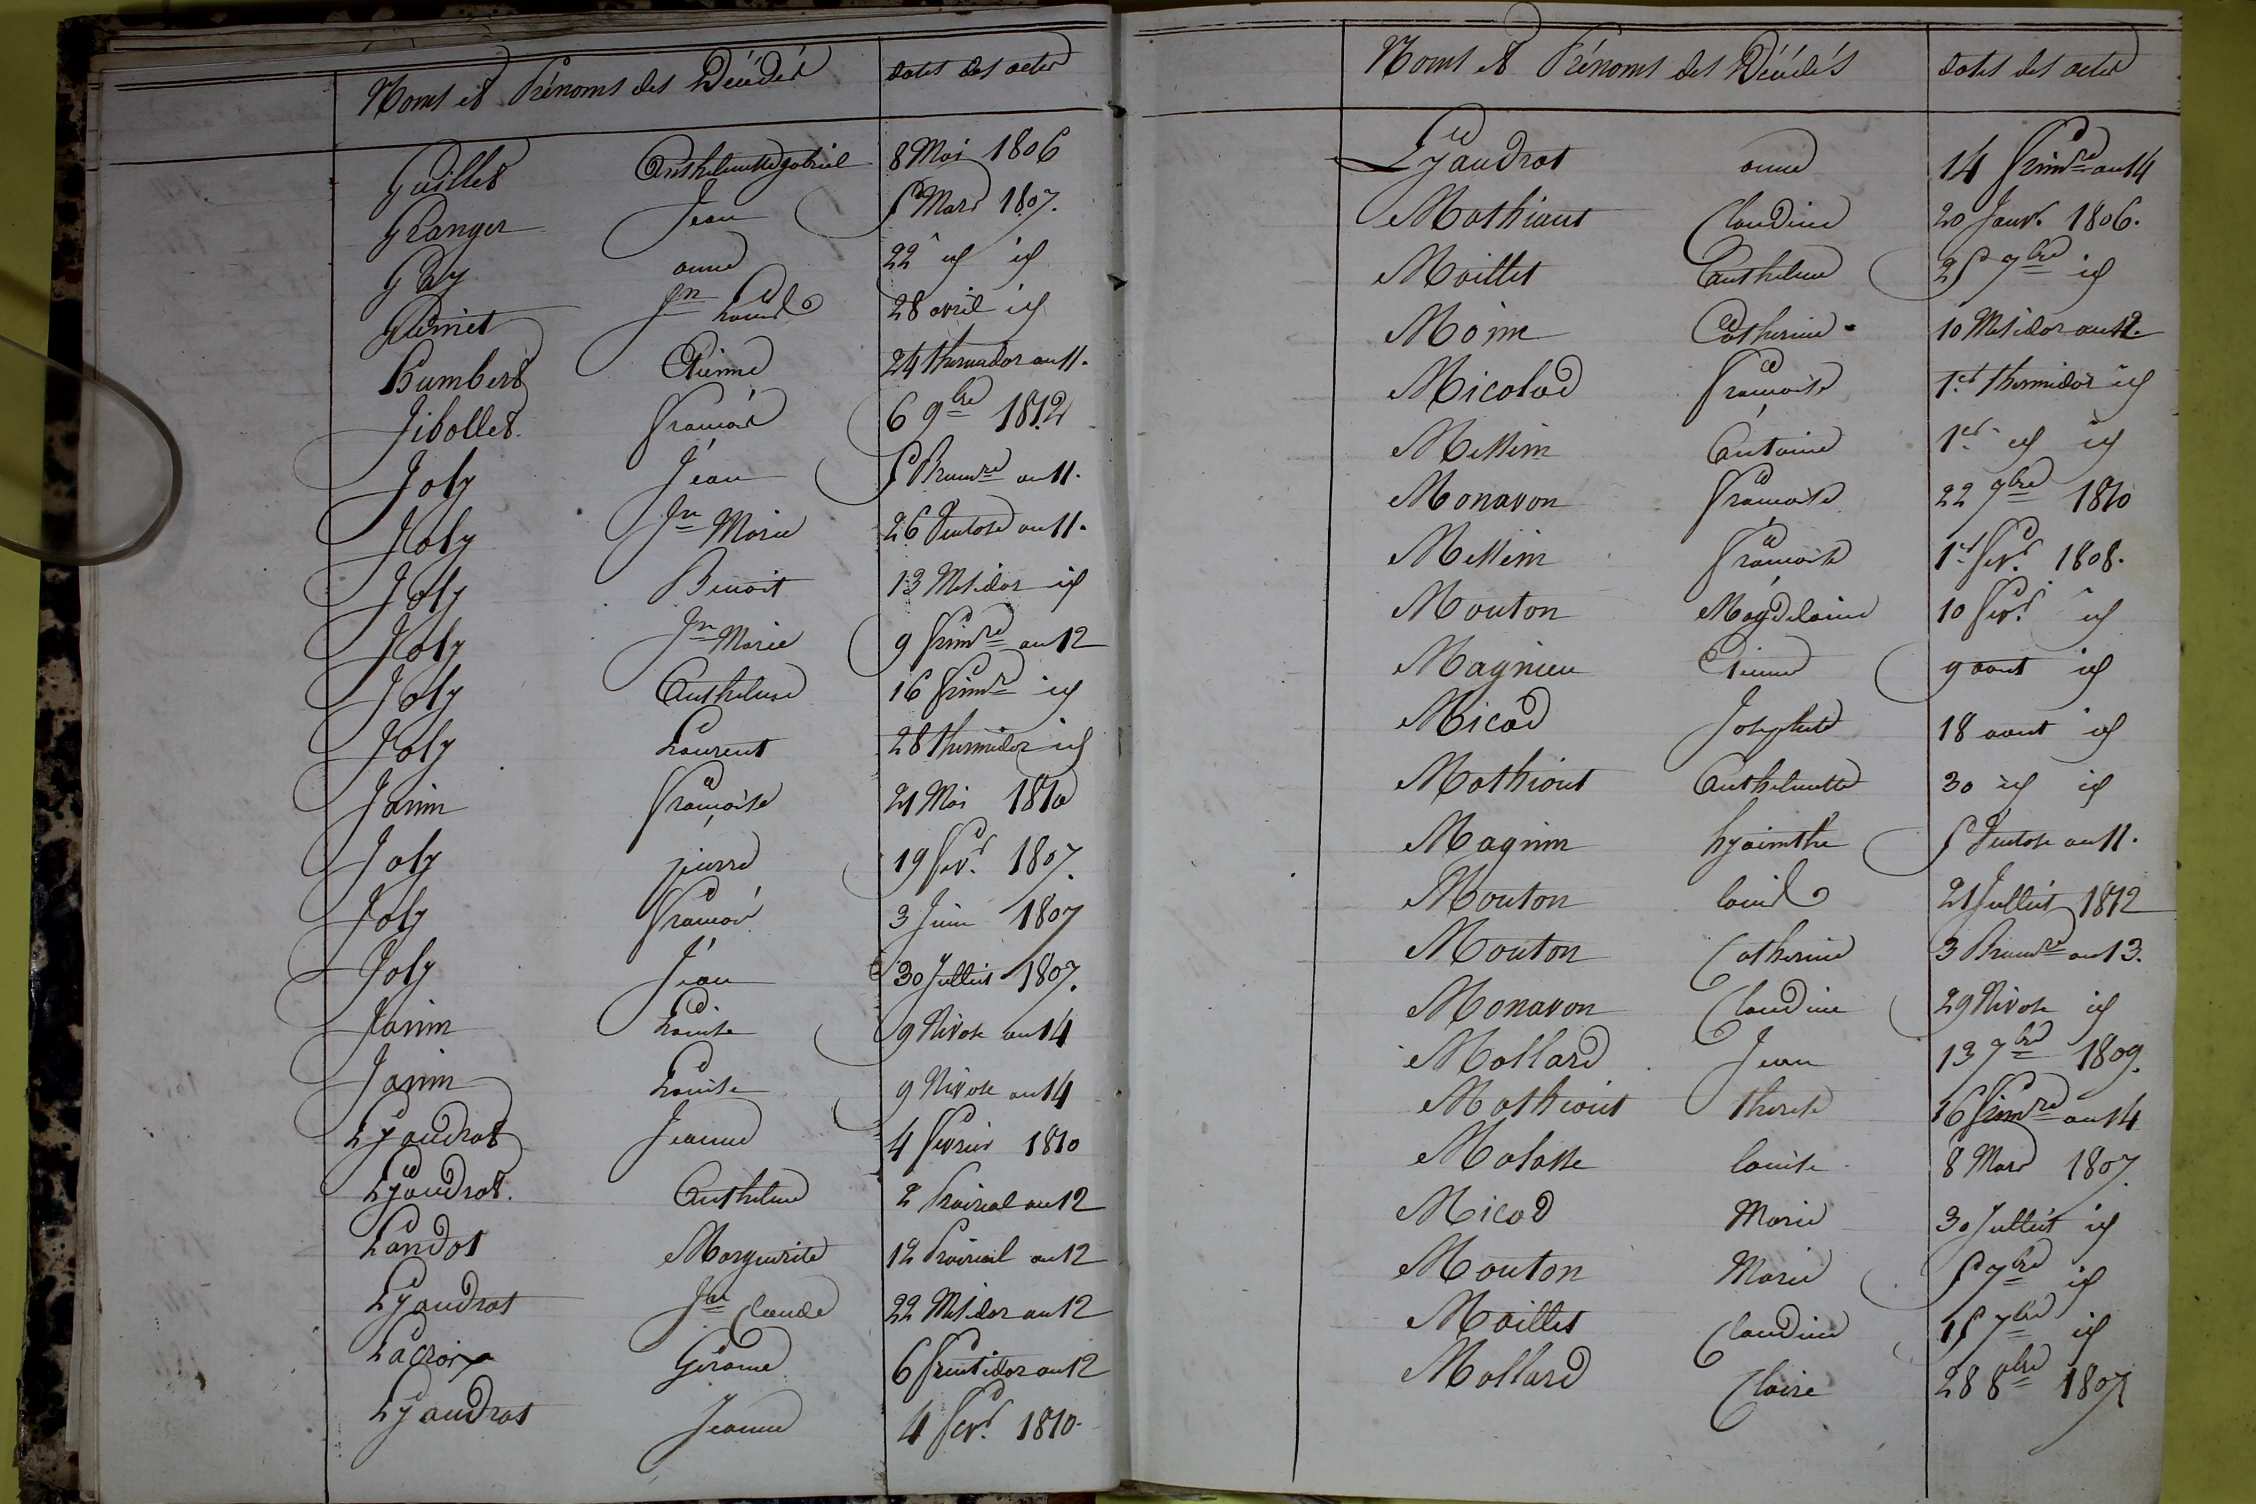 Noms et Prénoms des Décédés dates des actes
Guillet Anthelmette gabriel 8 Mai 1806
Granger Jean 5 Mars 1807.
Gay anne 22 id id
Guinet Jn Louis 28 avril id
Humbert Etienne 24 thermidor an 11.
Jibollet. François 6 9bre 1812
Joly Jean 5 Brumre an 11.
Joly Jn Marie 26 Ventose an 11.
Joly Benoit 13 Mesidor id
Joly Jn Marie 9 frimre an 12
Joly Anthelme 16 frimre id
Joly Laurent 28 thermidor id
Janin françoise 21 Mai 1810
Joly pierre 19 fevr. 1807.
Joly François 3 Juin 1807
Joly Jean 30 Juillet 1807.
Janin Louise 9 Nivose an 14
Janin Louise 9 Nivose an 14
Lyaudrat Jeanne 4 fevrier 1810
Lyaudrat. Anthelme 2 Prairial an 12
Landot Marguerite 12 Prairial an 12
Lyaudrat Jn Claude 22 Mesidor an 12
Lacroix Gérome 6 fructidor an 12
Lyaudrat Jeanne 4 fevr. 1810.
Noms et Prénoms des Décédés dates des actes
Lyaudrat anne 14 frimre an 14
Mathiaut Claudine 20 Janvr. 1806.
Maillet Anthelme 25 7bre id
Moine Catherine 10 Mesidor an 12
Micolad françoise 1er thermidor id
Messin Antoine 1er id id
Monavon françoise 22 7bre 1810
Messin françoise 1er fevr. 1808.
Mouton Magdelaine 10 fevr. id
Magnieu Etienne 9 aout id
Micod Josephte 18 aout id
Mathiout Anthelmette 30 id id
Magnin hyacinthe 5 Ventose an 11.
Mouton louis 21 Juillet 1812
Mouton Catherine 3 Brumre an 13.
Monavon Claudine 29 Nivose id
Mollard Jean 13 7bre 1809.
Mathiout therese 16 frimre an 14
Malasse louise 8 Mars 1807.
Micod Marie 30 Juillet id
Mouton Marie 5 7bre id
Maillet Claudine 15 7bre id
Mollard Claire 28 8bre 1807